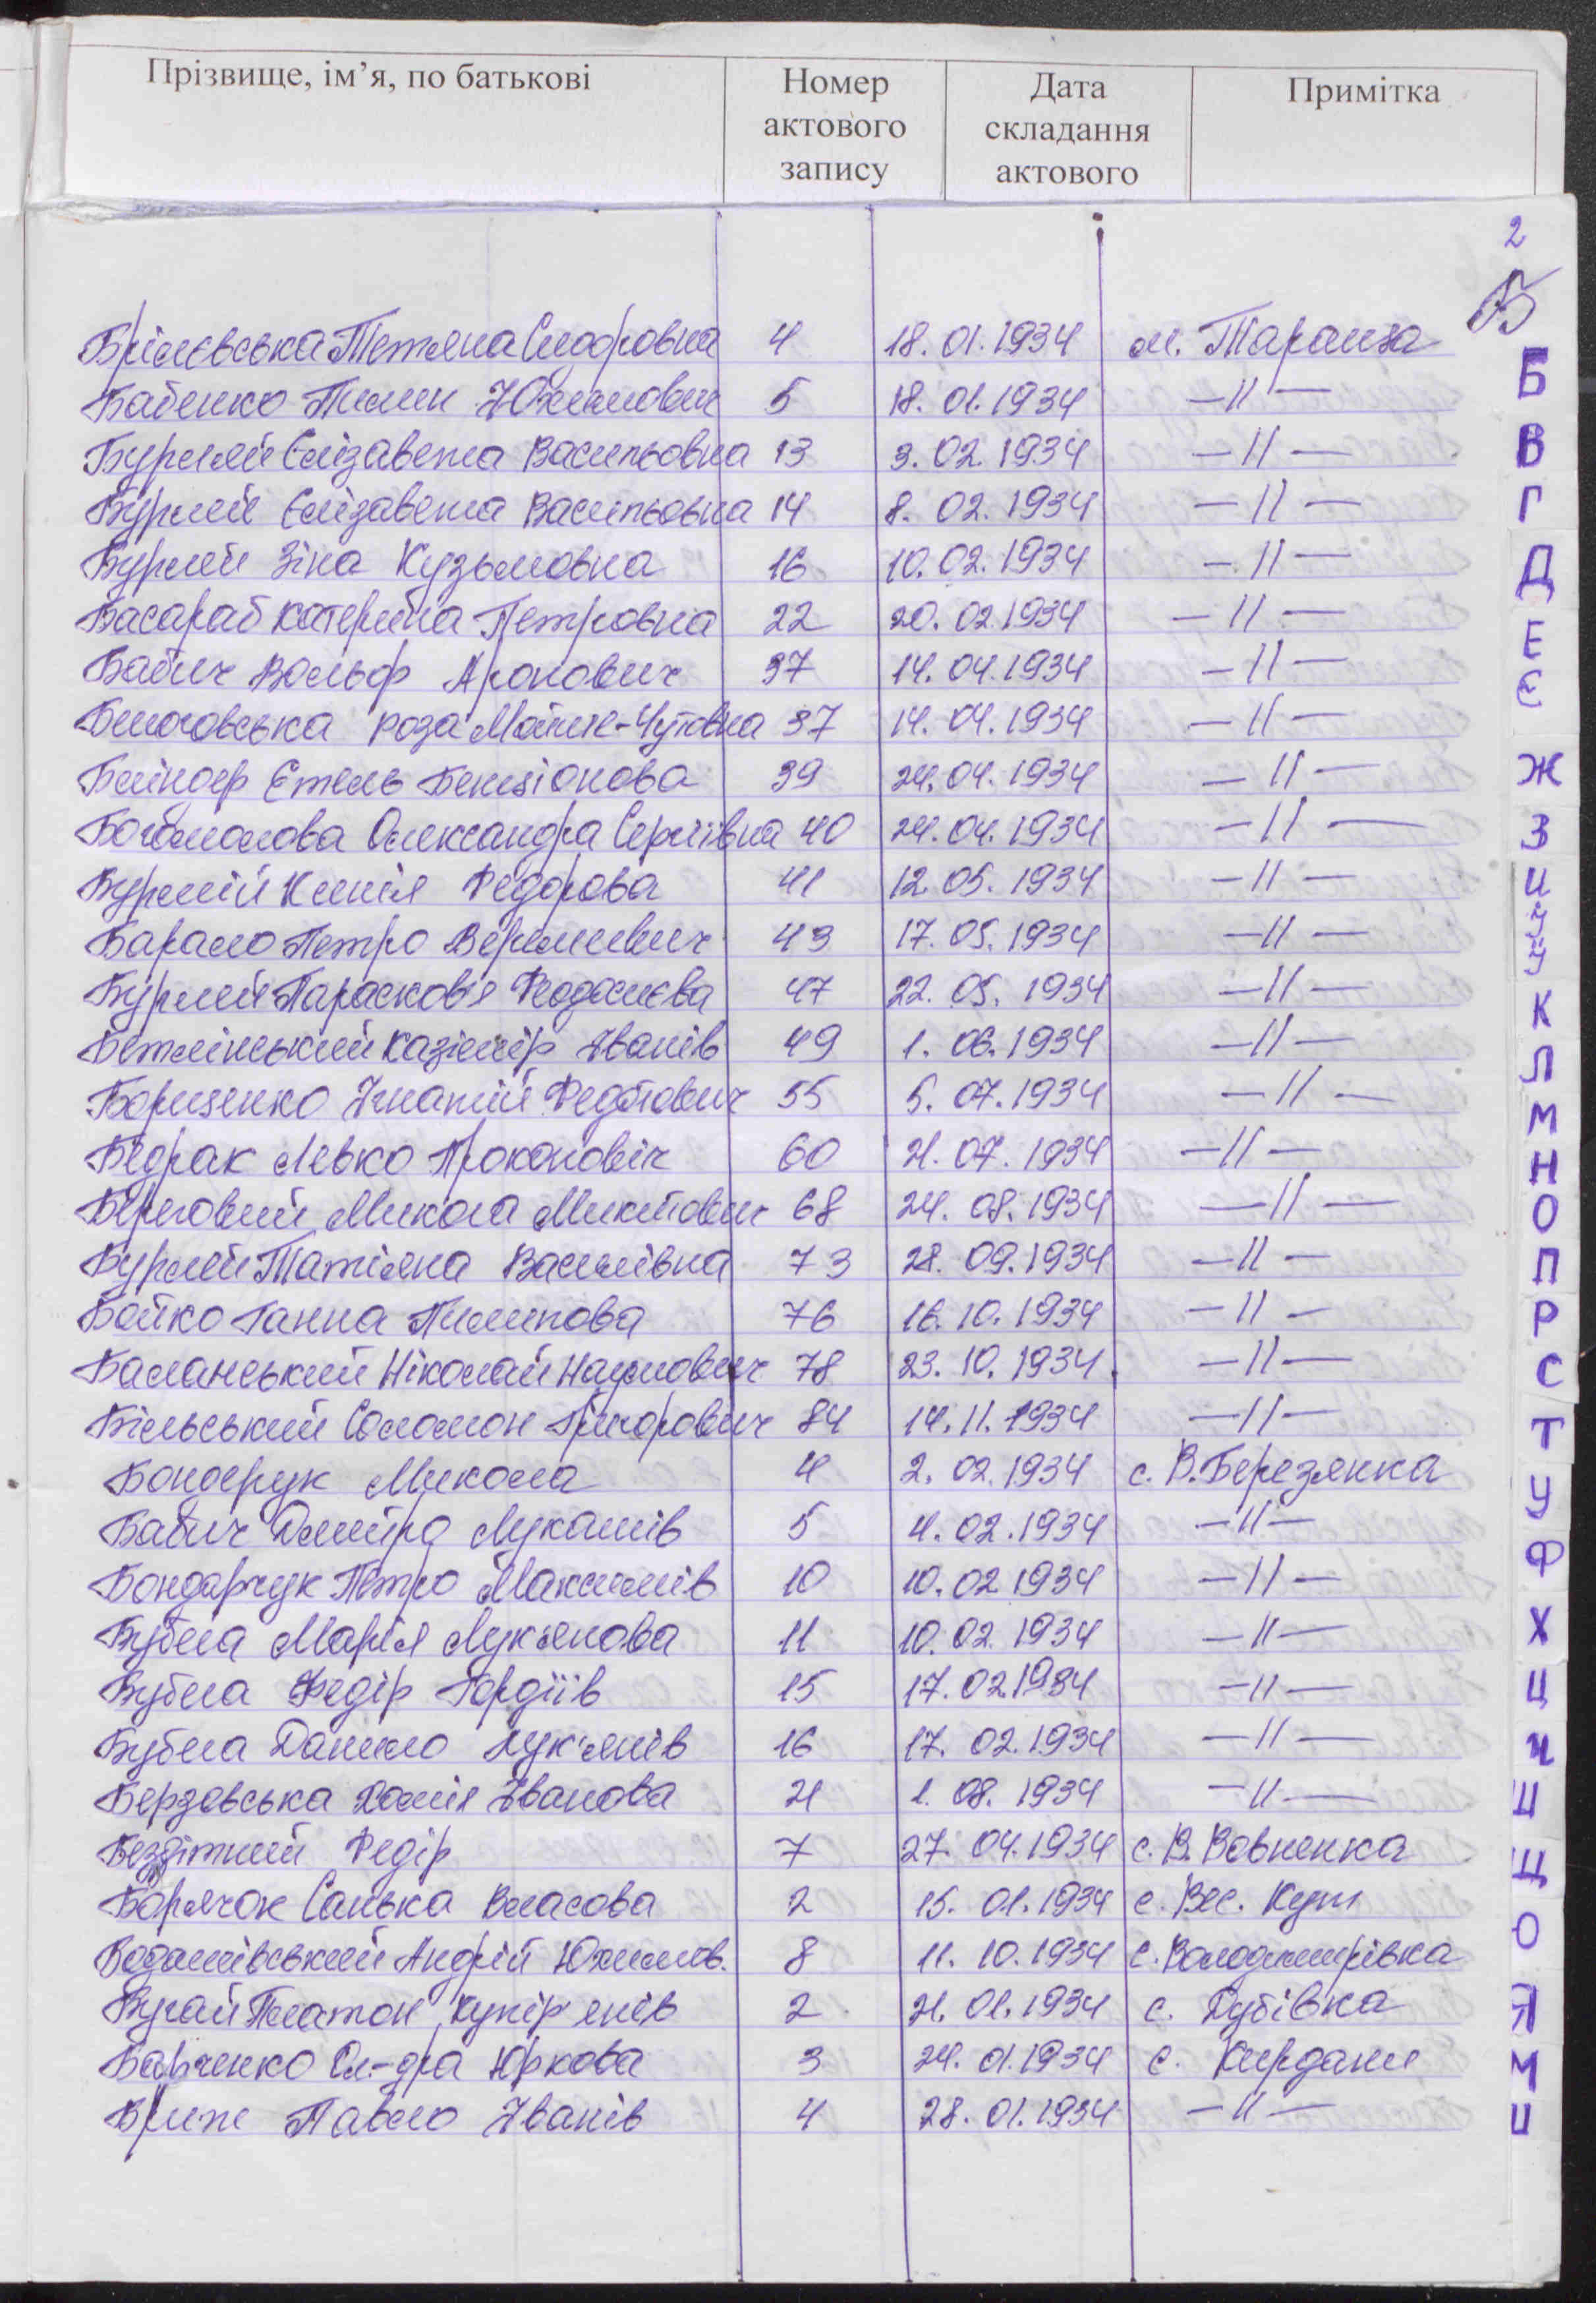 Прізвище, ім’я, по батькові Номер актового запису Дата складання актового Примітка
2
Б
Тетяна Сидоровна 4 18.01.1934 м. Тараща
Бабенко Пилип Юхимович 5 18.01.1934 —//—
Бурлій Єлізавета Васильовна 13 3.02.1934 —//—
Бурлій Єлізавета Васильовна 14 8.02.1934 —//—
Бурлій Зіна Кузьмовна 16 10.02.1934 —//—
Басараб Катерина Петровна 22 20.02.1934 —//—
Бабич Вольф Аронович 37 14.04.1934 —//—
Роза 37 14.04.1934 —//—
Етель Бенціонова 39 24.04.1934 —//—
Богомолова Олександра Сергіївна 40 24.04.1934 —//—
Бурлій Федорова 41 12.05.1934 —//—
Петро 43 17.05.1934 —//—
Бурлій Парасков'я Феодосиєва 47 22.05.1934 —//—
Казімір Іванів 49 1.06.1934 —//—
Борисенко Ігнатій Федотович 55 5.07.1934 —//—
Бедрак Левко Прокоповіч 60 21.07.1934 —//—
Береговий Микола Микитович 68 24.08.1934 —//—
Бурлій Татіяна Василівна 73 28.09.1934 —//—
Бойко Ганна Пилипова 76 16.10.1934 —//—
Баланський Ніколай Наумович 78 23.10.1934 —//—
Більський Соломон Грігорович 84 14.11.1934 —//—
Бондерук Микола 4 2.02.1934 с. В.Березянка
Бабич Дмитро Лукашів 5 4.02.1934 —//—
Бондарчук Петро Максимів 10 10.02.1934 —//—
Бубела Марія Лук'янова 11 10.02.1934 —//—
Бубела Федір Гордіїв 15 17.02.1934 —//—
Бубела Данило Лук'янів 16 17.02.1934 —//—
Берзовська Іванова 21 1.08.1934 —//—
Бездітний Федір 7 27.04.1934 с. В. Вовнянка
Борячок Санька Власова 2 15.01.1934 с. Вес. Кут
Андрій Юхимов. 8 11.10.1934 с. Володимирівка
Бугай Платон Купір'янів 2 21.01.1934 с. Дубівка
Ол-дра Юркова 3 24.01.1934 с. Кирдани
Павло Іванів 4 28.01.1934 —//—
Б
В
Г
Д
Е
Є
Ж
З
И
І
Ї
К
Л
М
Н
О
П
Р
С
Т
У
Ф
Х
Ц
Ч
Ш
Щ
Ю
Я